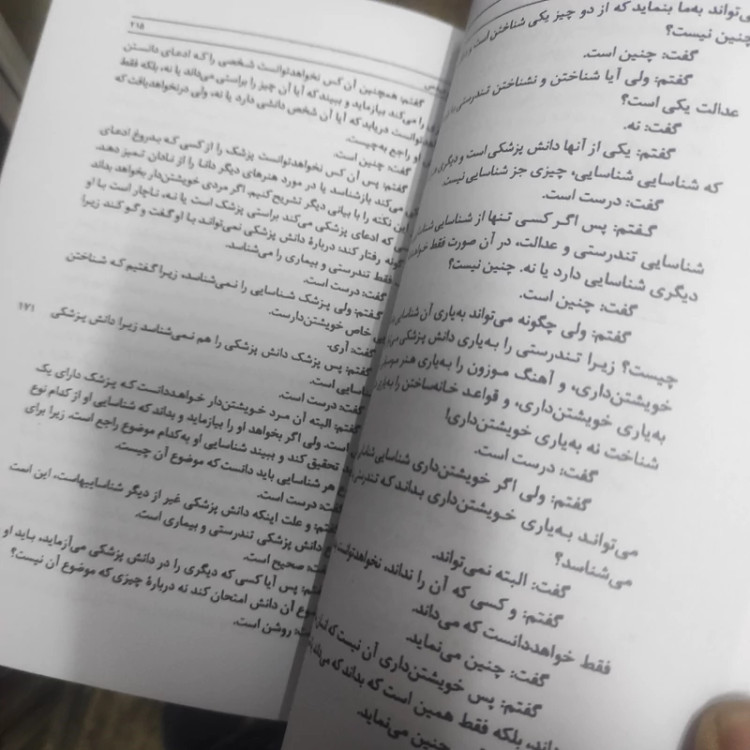 می‌تواند به‌ما بنماید که از دو چیز یکی شناختن است و
چنین نیست؟
گفت: چنین است.
گفتم: ولی آیا شناختن و نشناختن تندرستی
عدالت یکی است؟
گفت: نه.
گفتم: یکی از آنها دانش پزشکی است و دیگری
که شناسایی شناسایی، چیزی جز شناسایی نیست.
گفت: درست است.
گفتم: پس اگر کسی تنها از شناسایی
شناسایی تندرستی و عدالت، در آن صورت فقط
دیگری شناسایی دارد یا نه. چنین نیست؟
گفت: چنین است.
گفتم: ولی چگونه می‌تواند به‌یاری آن شناسایی
چیست؟ زیرا تندرستی را به‌یاری دانش پزشکی
خویشتن‌داری، و آهنگ موزون را به‌یاری هنر
به‌یاری خویشتن‌داری، و قواعد خانه‌ساختن را به‌یاری
شناخت نه به‌یاری خویشتن‌داری!
گفت: درست است.
گفتم: ولی اگر خویشتن‌داری شناسایی
می‌تواند به‌یاری خویشتن‌داری بداند که تندرستی
می‌شناسد؟
گفت: البته نمی‌تواند.
گفتم: و کسی که آن را نداند، نخواهدتوانست
فقط خواهددانست که می‌داند.
گفت: چنین می‌نماید.
گفتم: پس خویشتن‌داری آن نیست که
بلکه فقط همین است که بداند که می‌داند
چنین می‌نماید.
۲۱۵
گفتم: همچنین آن کس نخواهدتوانست شخصی را که ادعای دانستن
را می‌کند بیازماید و ببیند که آیا آن چیز را براستی می‌داند یا نه، بلکه فقط
دریابد که آیا آن شخص دانشی دارد یا نه، ولی درنخواهدیافت که
او راجع به‌چیست.
گفت: چنین است.
گفتم: پس آن کس نخواهدتوانست پزشک را از کسی که بدروغ ادعای
می‌کند بازشناسد یا در مورد هنرهای دیگر دانا را از نادان تمیز دهد.
این نکته را با بیانی دیگر تشریح کنیم. اگر مردی خویشتن‌دار بخواهد بداند
که ادعای پزشکی می‌کند براستی پزشک است یا نه، ناچار است با او
رفتار کند: دربارهٔ دانش پزشکی نمی‌تواند با او گفت و گو کند زیرا
فقط تندرستی و بیماری را می‌شناسد.
گفت: درست است.
گفتم: ولی پزشک شناسایی را نمی‌شناسد، زیرا گفتیم که شناختن
خاص خویشتن‌دارست.
گفت: آری.
۱۷۱ گفتم: پس پزشک دانش پزشکی را هم نمی‌شناسد زیرا دانش پزشکی
شناسایی است.
گفت: درست است.
گفتم: البته آن مرد خویشتن‌دار خواهددانست که پزشک دارای یک
است. ولی اگر بخواهد او را بیازماید و بداند که شناسایی او از کدام نوع
تحقیق کند و ببیند شناسایی او به‌کدام موضوع راجع است. زیرا برای
هر شناسایی باید دانست‌که موضوع آن چیست.
گفت: درست است.
گفتم: و علت اینکه دانش پزشکی غیر از دیگر شناساییهاست، این است
دانش پزشکی تندرستی و بیماری است.
گفت: صحیح است.
گفتم: پس آیا کسی که دیگری را در دانش پزشکی می‌آزماید، باید او
آن دانش امتحان کند نه دربارهٔ چیزی که موضوع آن نیست؟
روشن است.